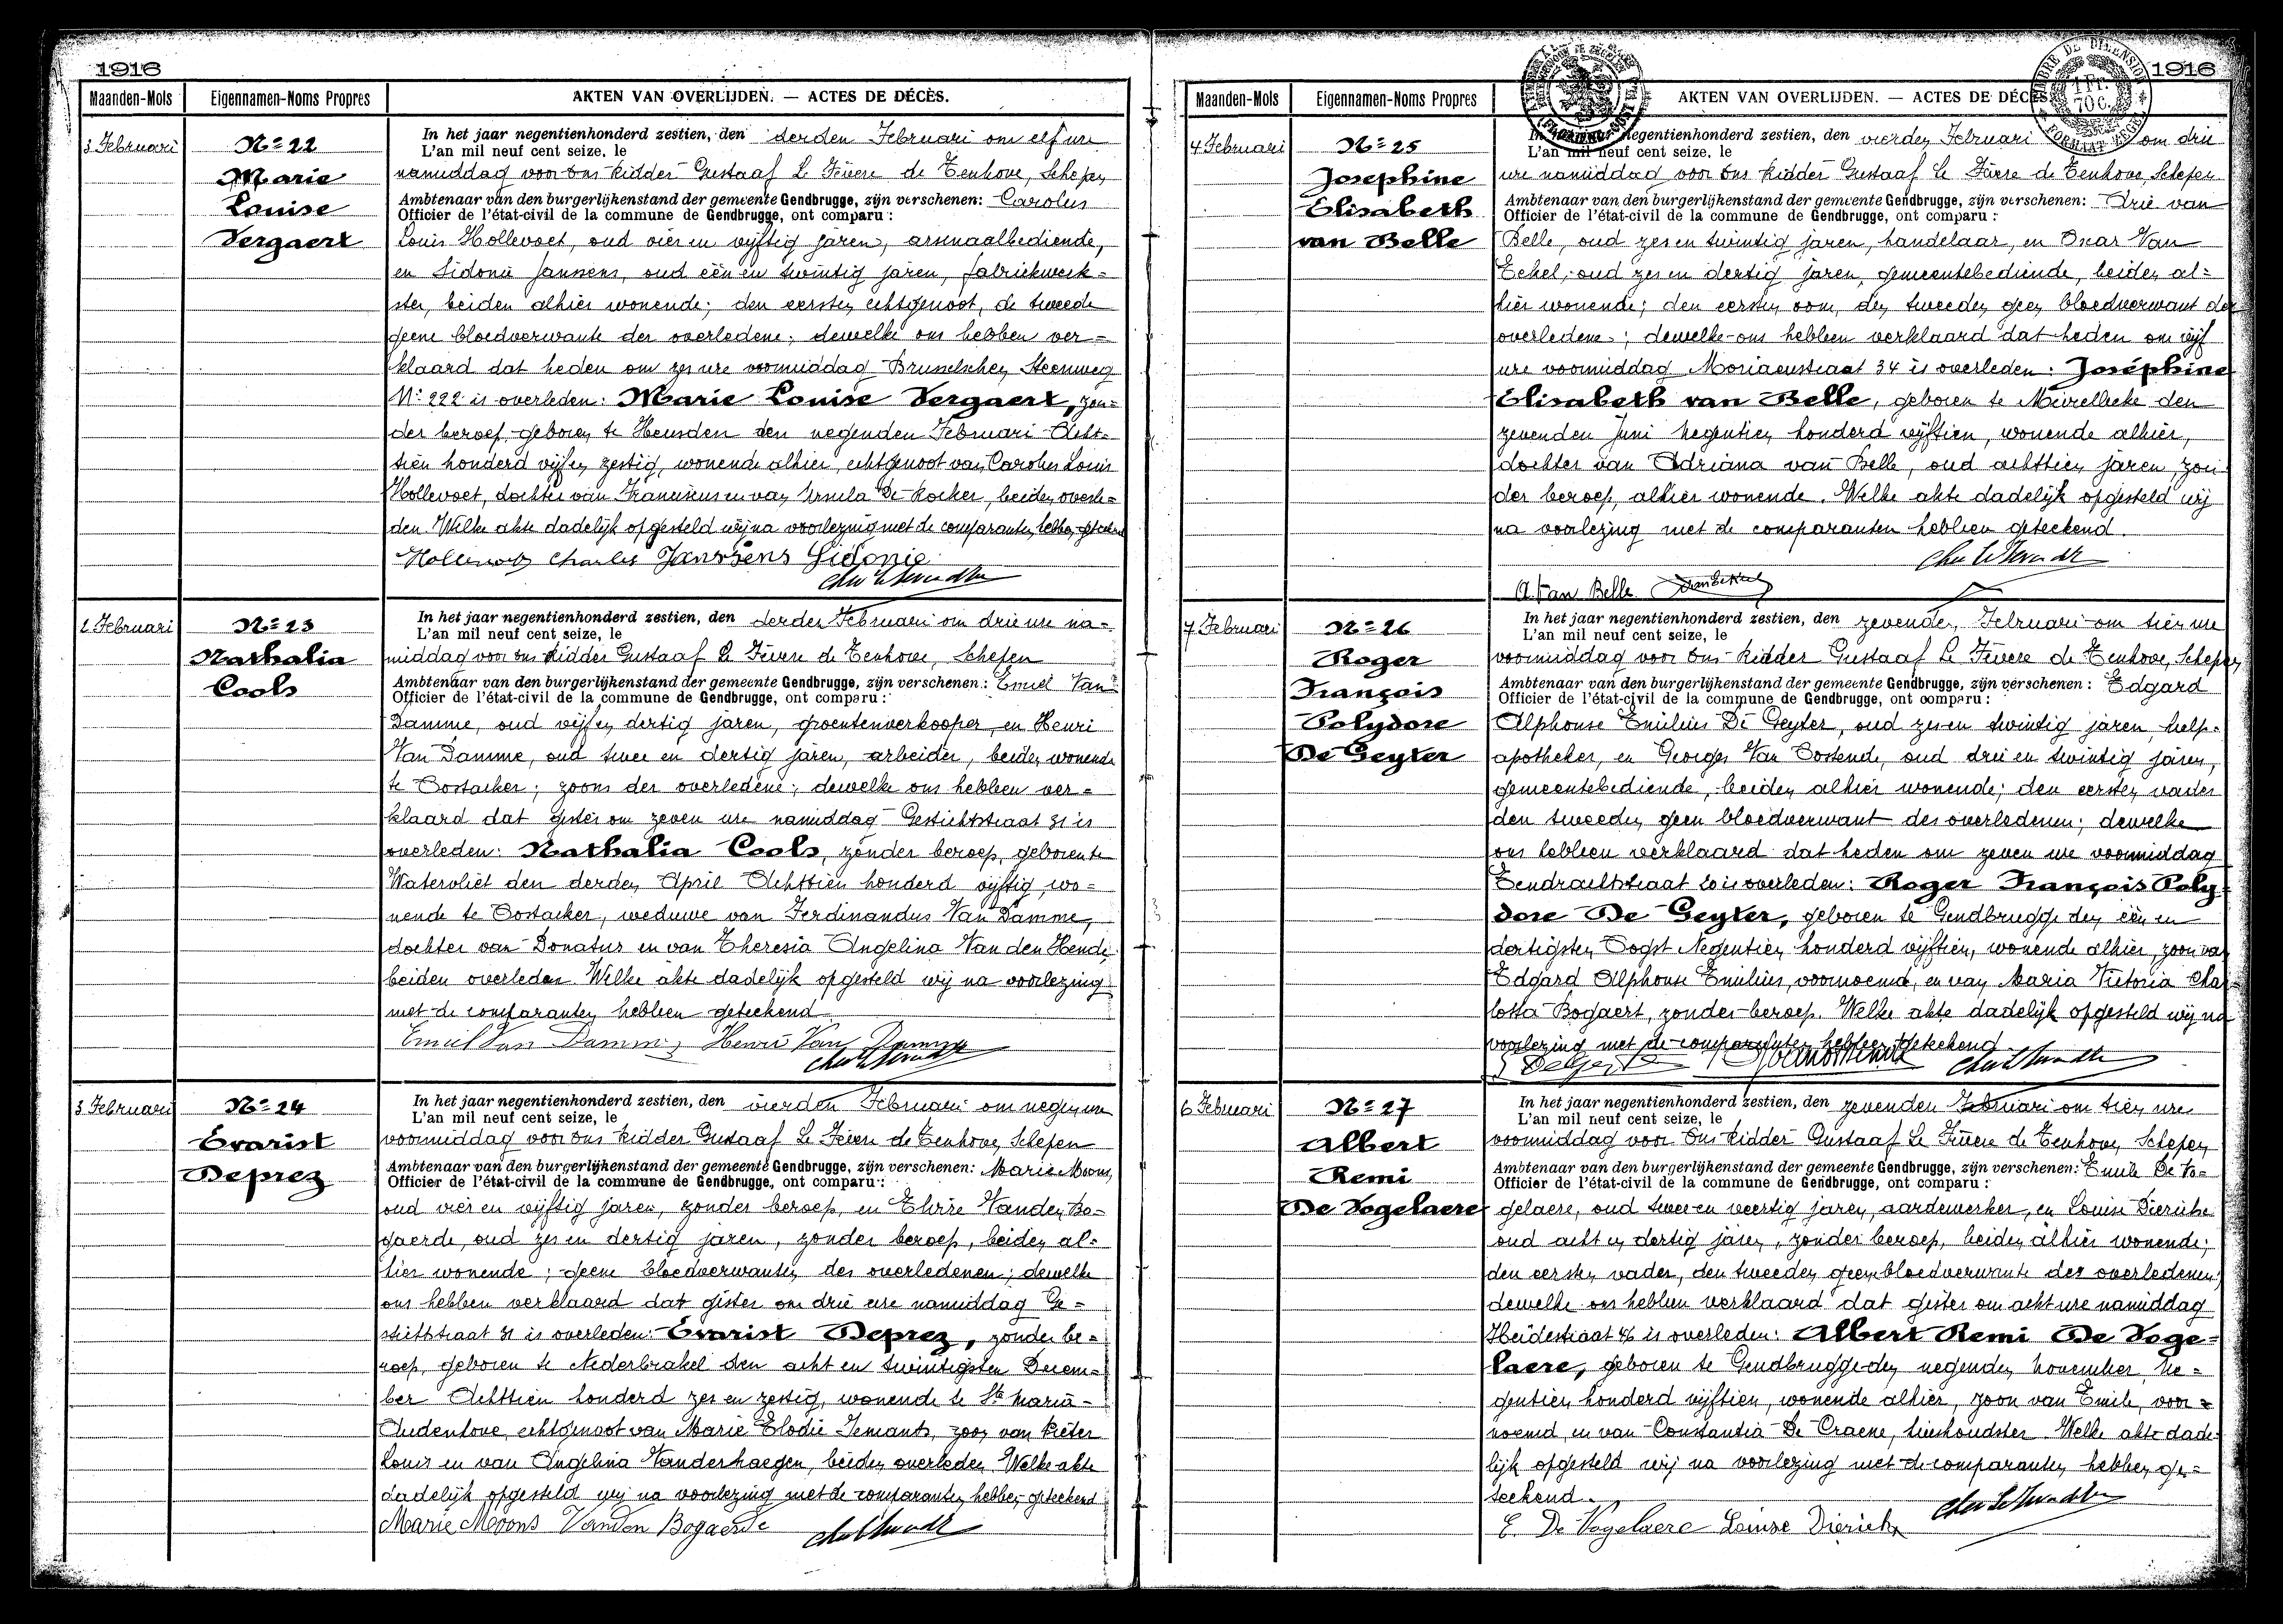 1916
Maanden-Mois Eigennamen-Noms Propres AKTEN VAN OVERLIJDEN. — ACTES DE DÉCÈS.
3 Februari
Nº 22
Marie
Louise
Vergaert
In het jaar negentienhonderd zestien, den derden Februari om elf ure
L'an mil neuf cent seize, le
namiddag voor Ons Ridder Gustaaf Le Fèvere de Tenhove, Schepen
Ambtenaar van den burgerlijkenstand der gemeente Gendbrugge, zijn verschenen: Carolus
Officier de l'état-civil de la commune de Gendbrugge, ont comparu :
Louis Hollevoet, oud vier en vijftig jaren, arsenaalbediende,
en Sidonie Janssens, oud één en twintig jaren, fabriekwerk=
ster, beiden alhier wonende; den eersten echtgenoot, de tweede
geene bloedverwante der overledene; dewelke ons hebben ver=
klaard dat heden om zes ure voormiddag Brusselschen Steenweg
Nº 222 is overleden: Marie Louise Vergaert, zon=
der beroep, geboren te Heusden den negenden Februari Acht=
tien honderd vijf en zestig, wonende alhier, echtgenoot van Carolus Louis
Hollevoet, dochter van Franciscus en van Ursula De Kocker, beiden overle=
den. Welke akte dadelijk opgesteld wij na voorlezing met de comparanten hebben geteekend
Hollevoet Charles Janssens Sidonie
2 Februari
Nº 23
Nathalia
Cools
In het jaar negentienhonderd zestien, den derden Februari om drie ure na=
L'an mil neuf cent seize, le
middag voor Ons Ridder Gustaaf Le Fèvere de Tenhove, Schepen
Ambtenaar van den burgerlijkenstand der gemeente Gendbrugge, zijn verschenen: Emiel Van
Officier de l'état-civil de la commune de Gendbrugge, ont comparu :
Damme, oud vijf en dertig jaren, groentenverkooper, en Henri
Van Damme, oud twee en dertig jaren, arbeider, beiden wonende
te Oostacker; zoons der overledene; dewelke ons hebben ver=
klaard dat gister om zeven ure namiddag Gestichtstraat 31 is
overleden: Nathalia Cools, zonder beroep, geboren te
Watervliet den derden April Achttien honderd vijftig, wo=
nende te Oostacker, weduwe van Ferdinandus Van Damme,
dochter van Donatus en van Theresia Angelina Van den Hende,
beiden overleden. Welke akte dadelijk opgesteld wij na voorlezing
met de comparanten hebben geteekend
Emiel Van Damme, Henri Van Damme
3 Februari
Nº 24
Evarist
Deprez
In het jaar negentienhonderd zestien, den vierden Februari om negen ure
L'an mil neuf cent seize, le
voormiddag voor Ons Ridder Gustaaf Le Fèvere de Tenhove, Schepen
Ambtenaar van den burgerlijkenstand der gemeente Gendbrugge, zijn verschenen: Marie Moons,
Officier de l'état-civil de la commune de Gendbrugge, ont comparu :
oud vier en vijftig jaren, zonder beroep, en Elvire Vanden Bo=
gaerde, oud zes en dertig jaren, zonder beroep, beiden al=
hier wonende; geene bloedverwanten des overledenen; dewelke
ons hebben verklaard dat gister om drie ure namiddag Ge=
stichtstraat 31 is overleden: Evarist Deprez, zonder be=
roep, geboren te Nederbrakel den acht en twintigsten Decem=
ber Achttien honderd zes en zestig, wonende te Ste Maria=
Audenhove, echtgenoot van Marie Elodie Temants, zoon van Pieter
Louis en van Angelina Vanderhaegen, beiden overleden. Welke akte
dadelijk opgesteld wij na voorlezing met de comparanten hebben geteekend
Marie Moons Vanden Bogaerde
1916
Maanden-Mois Eigennamen-Noms Propres AKTEN VAN OVERLIJDEN. — ACTES DE DÉCÈS.
TIMBRE DE DIMENSION
1 Fr.
70 c.
4 Februari
Nº 25
Josephine
Elisabeth
van Belle
In het jaar negentienhonderd zestien, den vierden Februari om drie
L'an mil neuf cent seize, le
ure namiddag voor Ons Ridder Gustaaf Le Fèvere de Tenhove, Schepen
Ambtenaar van den burgerlijkenstand der gemeente Gendbrugge, zijn verschenen: Arie van
Officier de l'état-civil de la commune de Gendbrugge, ont comparu :
Belle, oud zes en twintig jaren, handelaar, en Oscar Van
Eekel, oud zes en dertig jaren, gemeentebediende, beiden al=
hier wonende; den eersten oom, den tweeden geen bloedverwant der
overledene; dewelke ons hebben verklaard dat heden om vijf
ure voormiddag Moriaenstraat 34 is overleden: Joséphine
Elisabeth van Belle, geboren te Meirelbeke den
zevenden Juni Negentien honderd vijftien, wonende alhier,
dochter van Adriana van Belle, oud achttien jaren, zon
der beroep, alhier wonende. Welke akte dadelijk opgesteld wij
na voorlezing met de comparanten hebben geteekend.
A. Van Belle
7 Februari
Nº 26
Roger
François
Polydore
De Geyter
In het jaar negentienhonderd zestien, den zevenden Februari om tien ure
L'an mil neuf cent seize, le
voormiddag voor Ons Ridder Gustaaf Le Fèvere de Tenhove, Schepen
Ambtenaar van den burgerlijkenstand der gemeente Gendbrugge, zijn verschenen: Edgard
Officier de l'état-civil de la commune de Gendbrugge, ont comparu :
Alphonse Emilius De Geyter, oud zes en twintig jaren, help=
apotheker, en Georges Van Oostende, oud drie en twintig jaren,
gemeentebediende, beiden alhier wonende; den eersten vader
den tweeden geen bloedverwant des overledenen; dewelke
ons hebben verklaard dat heden om zeven ure voormiddag
Eendrachtstraat 20 is overleden: Roger François Poly
dore De Geyter, geboren te Gendbrugge den één en
dertigsten Oogst Negentien honderd vijftien, wonende alhier, zoon van
Edgard Alphonse Emilius, voornoemd, en van Maria Victoria Char=
lotta Bogaert, zonder beroep. Welke akte dadelijk opgesteld wij na
voorlezing met de comparanten hebben geteekend
6 Februari
Nº 27
Albert
Remi
De Vogelaere
In het jaar negentienhonderd zestien, den zevenden Februari om tien ure
L'an mil neuf cent seize, le
voormiddag voor Ons Ridder Gustaaf Le Fèvere de Tenhove, Schepen
Ambtenaar van den burgerlijkenstand der gemeente Gendbrugge, zijn verschenen: Emile De Vo=
Officier de l'état-civil de la commune de Gendbrugge, ont comparu :
gelaere, oud twee en veertig jaren, aardewerker, en Louise Dierickx
oud acht en dertig jaren, zonder beroep, beiden alhier wonende;
den eersten vader, den tweeden geen bloedverwante des overledenen;
dewelke ons hebben verklaard dat gister om acht ure namiddag
Heidestraat 46 is overleden: Albert Remi De Voge=
laere, geboren te Gendbrugge den negenden November Ne=
gentien honderd vijftien, wonende alhier, zoon van Emile, voor=
noemd, en van Constantia De Craene, huishoudster. Welke akte dade
lijk opgesteld wij na voorlezing met de comparanten hebben ge=
teekend.
E. De Vogelaere Louise Dierickx